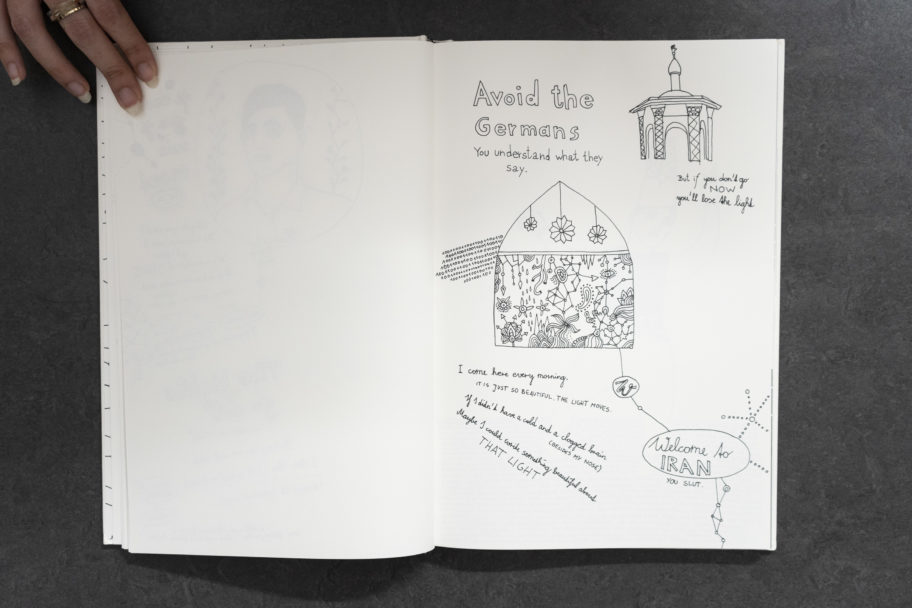 Avoid the
Germans
You understand what they
say.
But if you don't go
NOW
you'll lose the light
I come here every morning.
IT IS JUST SO BEAUTIFUL. THE LIGHT MOVES.
If I didn't have a cold and a clogged brain
(BESIDES MY NOSE)
Maybe I could write something beautiful about
THAT LIGHT
W
Welcome to
IRAN
YOU SLUT.